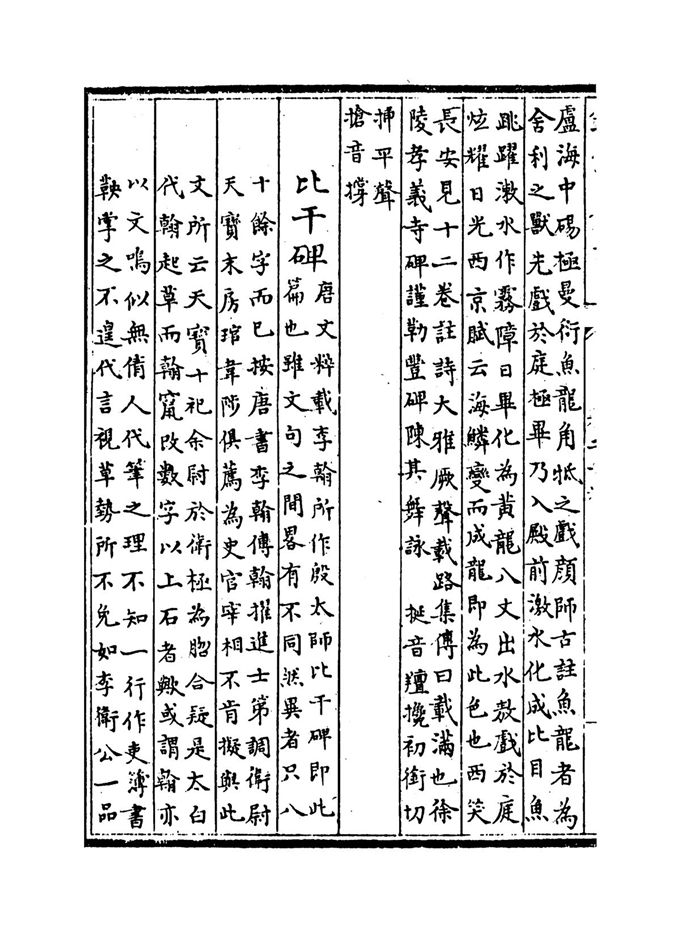 盧海中碭極曼衍魚龍角牴之戲顔師古註魚龍者為
舍利之獸先戲於庭極畢乃入殿前激水化成比目魚
跳躍漱水作霧障日畢化為黃龍八丈出水敖戲於庭
炫耀日光西京賦云海鱗變而成龍即為此色也西笑
長安見十二卷註詩大雅厥聲載路集傳曰載滿也徐
陵孝義寺碑謹勒豐碑陳其舞詠 挻音羶攙初銜切
挿平聲
搶音撐
比干碑
唐文粹載李翰所作殷太師比干碑即此
篇也雖文句之間畧有不同然異者只八
十餘字而已按唐書李翰傳翰擢進士第調衛尉
天寶末房琯韋陟俱薦為史官宰相不肯擬與此
文所云天寶十祀余尉於衛極為脗合疑是太白
代翰起草而翰竄改數字以上石者歟或謂翰亦
以文鳴似無倩人代筆之理不知一行作吏簿書
鞅掌之不遑代言視草勢所不免如李衛公一品